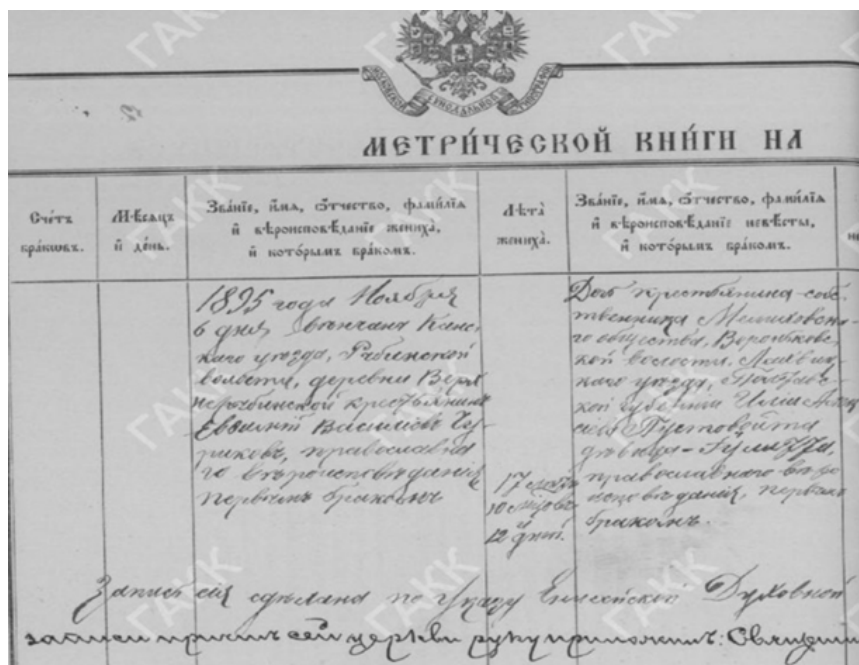 ГАКК
МОСКОВСКОЙ СѴНОДАЛЬНОЙ ТИПОГРАФІИ
МЕТРИ́ЧЕСКОЙ КНИ́ГИ НА
Сче́тъ бра́кωвъ.
Мѣсяцъ и де́нь.
Зва́нїе, и́мя, ѻ́тчество, фами́лїя
и вѣроисповѣ́данїе жениха̀,
и кото́рымъ бра́комъ.
Лѣта̀ жениха̀.
Зва́нїе, и́мя, ѻ́тчество, фами́лїя
и вѣроисповѣ́данїе невѣ́сты,
и кото́рымъ бра́комъ.
1895 года Ноября
6 дня вѣнчанъ Канс-
каго уѣзда, Рыбинской
волости, деревни Верх-
нерыбинской крестьянинъ
Василіевъ Чу-
риковъ, православна-
го вѣроисповѣданія,
первымъ бракомъ
17 лѣтъ
10 мѣсяцовъ
и
12 дней.
Дочь крестьянина-собс-
твенника
го общества,
кой волости,
каго уѣзда, Полтавс-
кой губерніи Иліи
Пустовойта
дѣвица
православнаго вѣро
исповѣданія, первымъ
бракомъ.
Запись сія сдѣлана по Указу Енисейской Духовной
записи причтъ сей церкви руку приложилъ: Священни